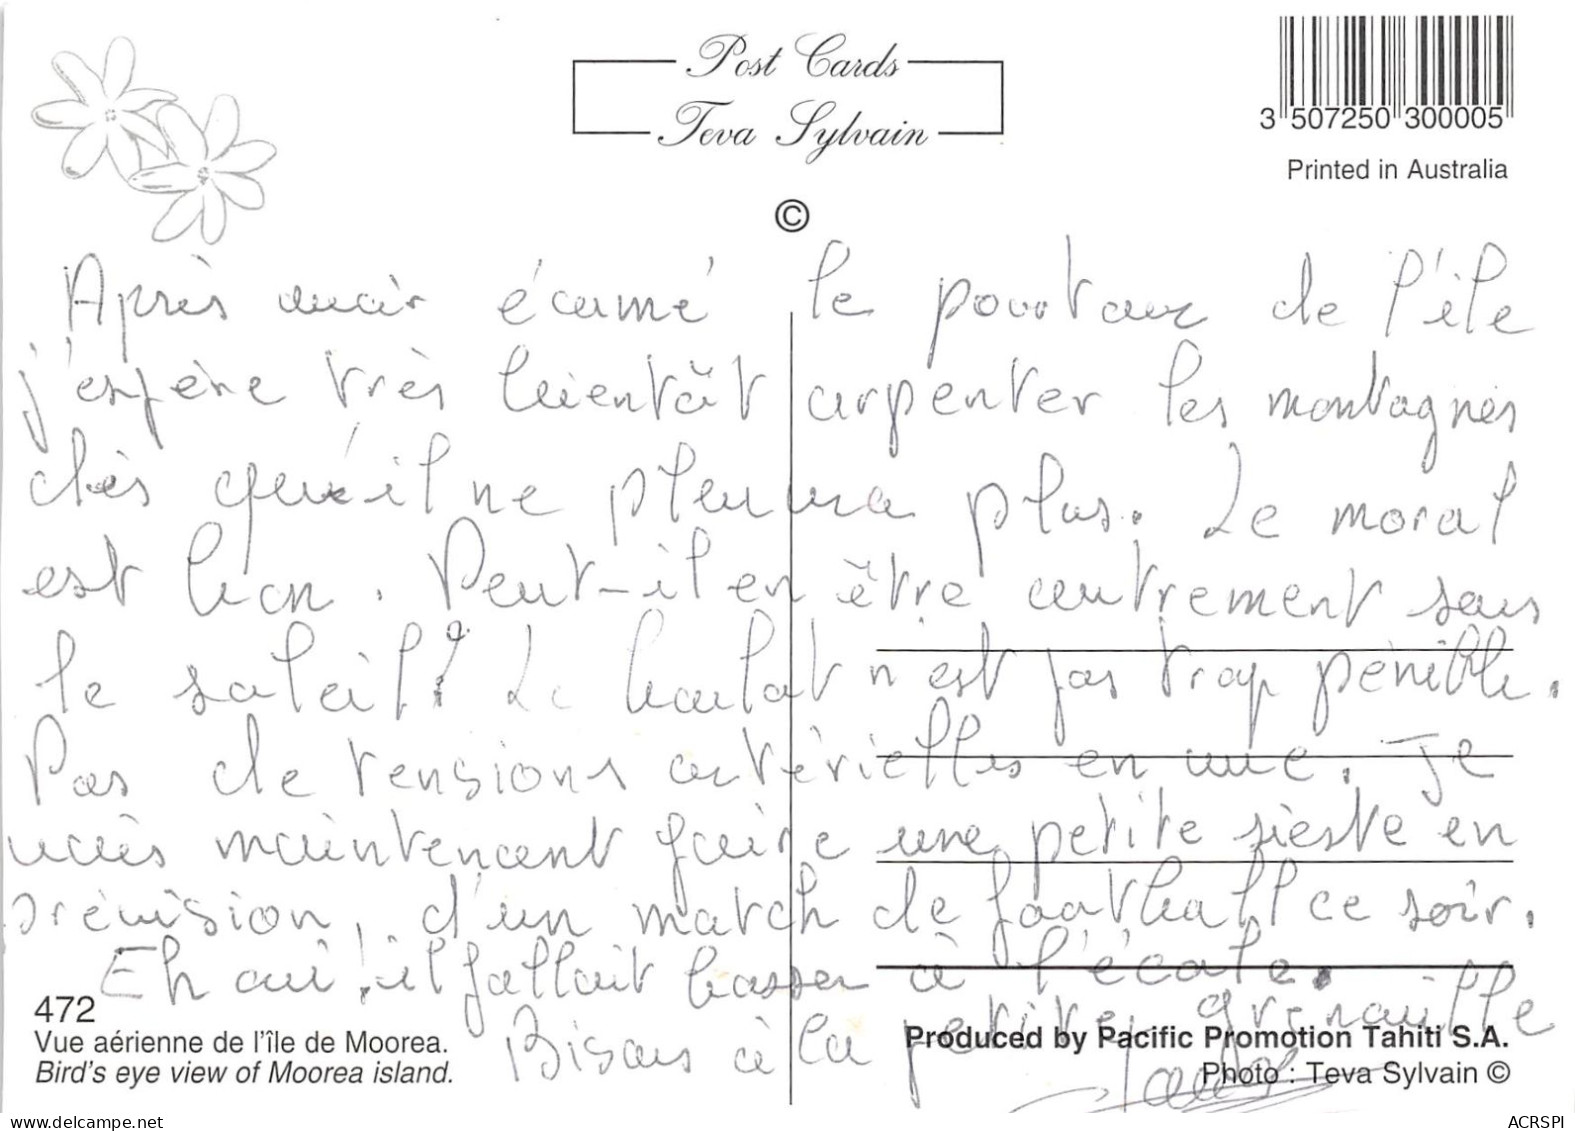 Post Cards
Teva Sylvain
3 507250 300005
Printed in Australia
©
Après avoir écumé le pourtour de l'île
j'espère très bientôt arpenter les montagnes
dès qu'il ne pleuvra plus. Le moral
est bon. Peut-il en être autrement sans
le soleil? Le boulot n'est pas trop pénible.
Pas de tensions artérielles en vue. Je
vais maintenant faire une petite sieste en
prévision, d'un match de football ce soir.
Eh oui! il fallait bosser à l'école.
Bisous à la petite grenaille
472
Vue aérienne de l'île de Moorea.
Bird's eye view of Moorea island.
Produced by Pacific Promotion Tahiti S.A.
Photo : Teva Sylvain ©
ACRSPI